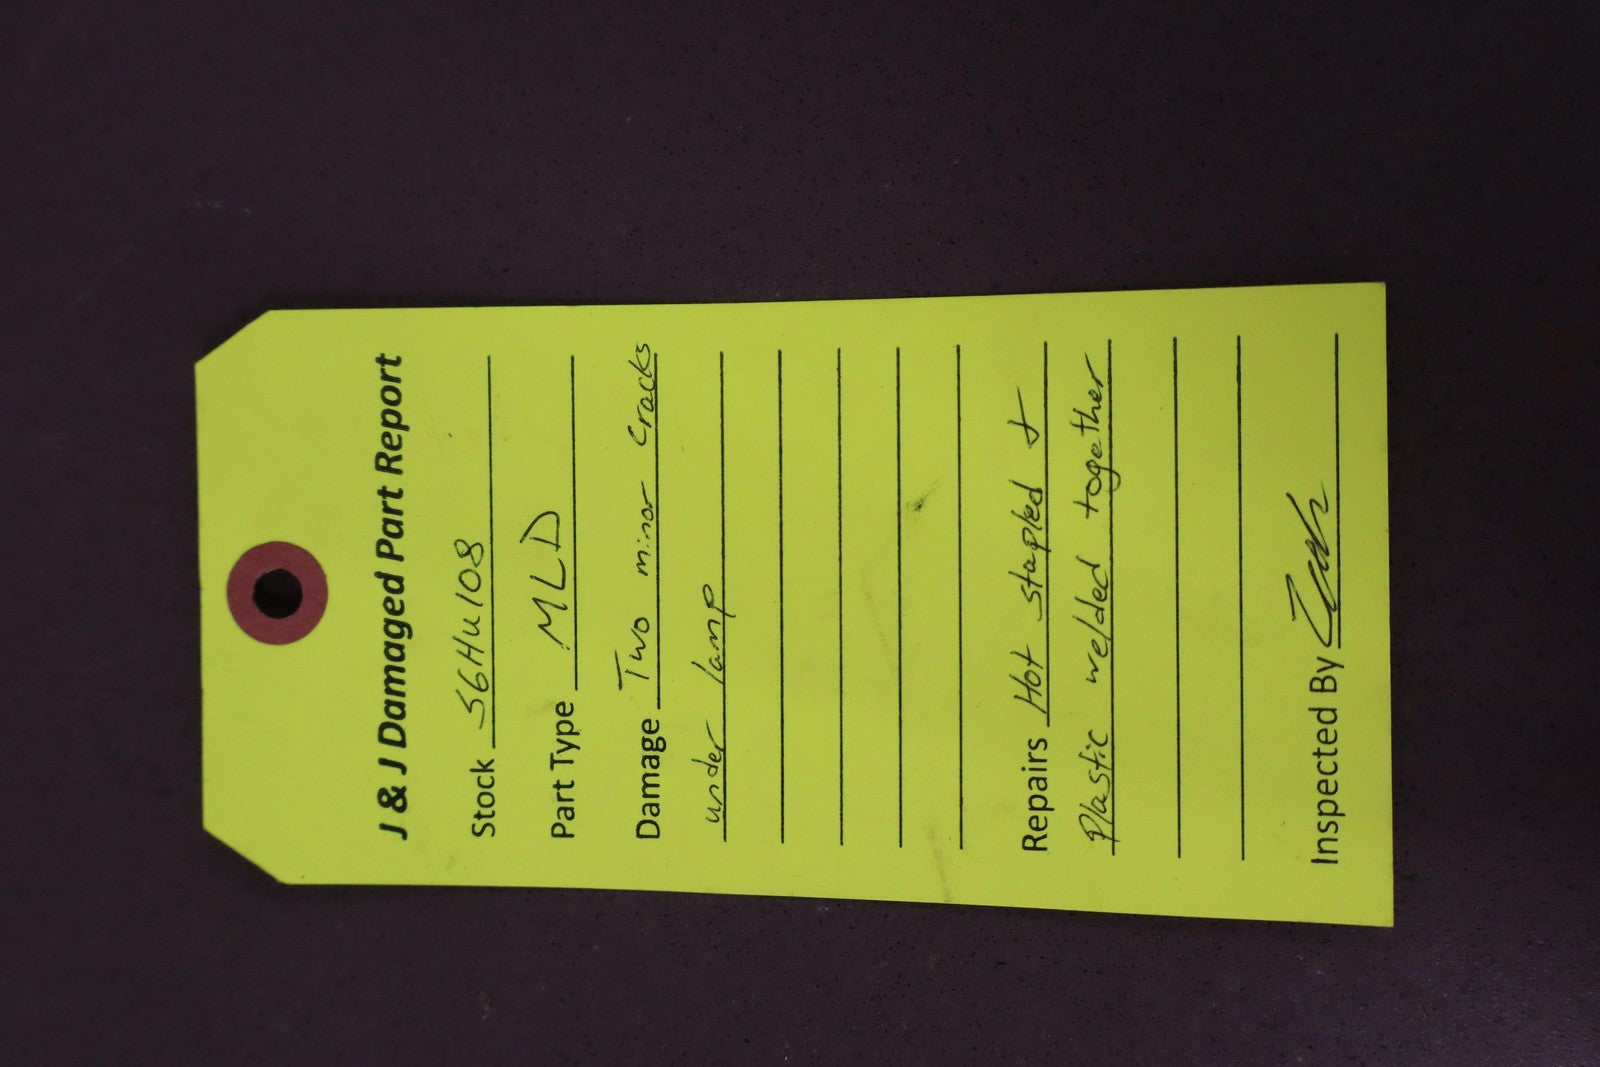 J & J Damaged Part Report
Stock S6HU108
Part Type MLD
Damage Two minor cracks
under lamp
Repairs Hot stapled &
Plastic welded together
Inspected By